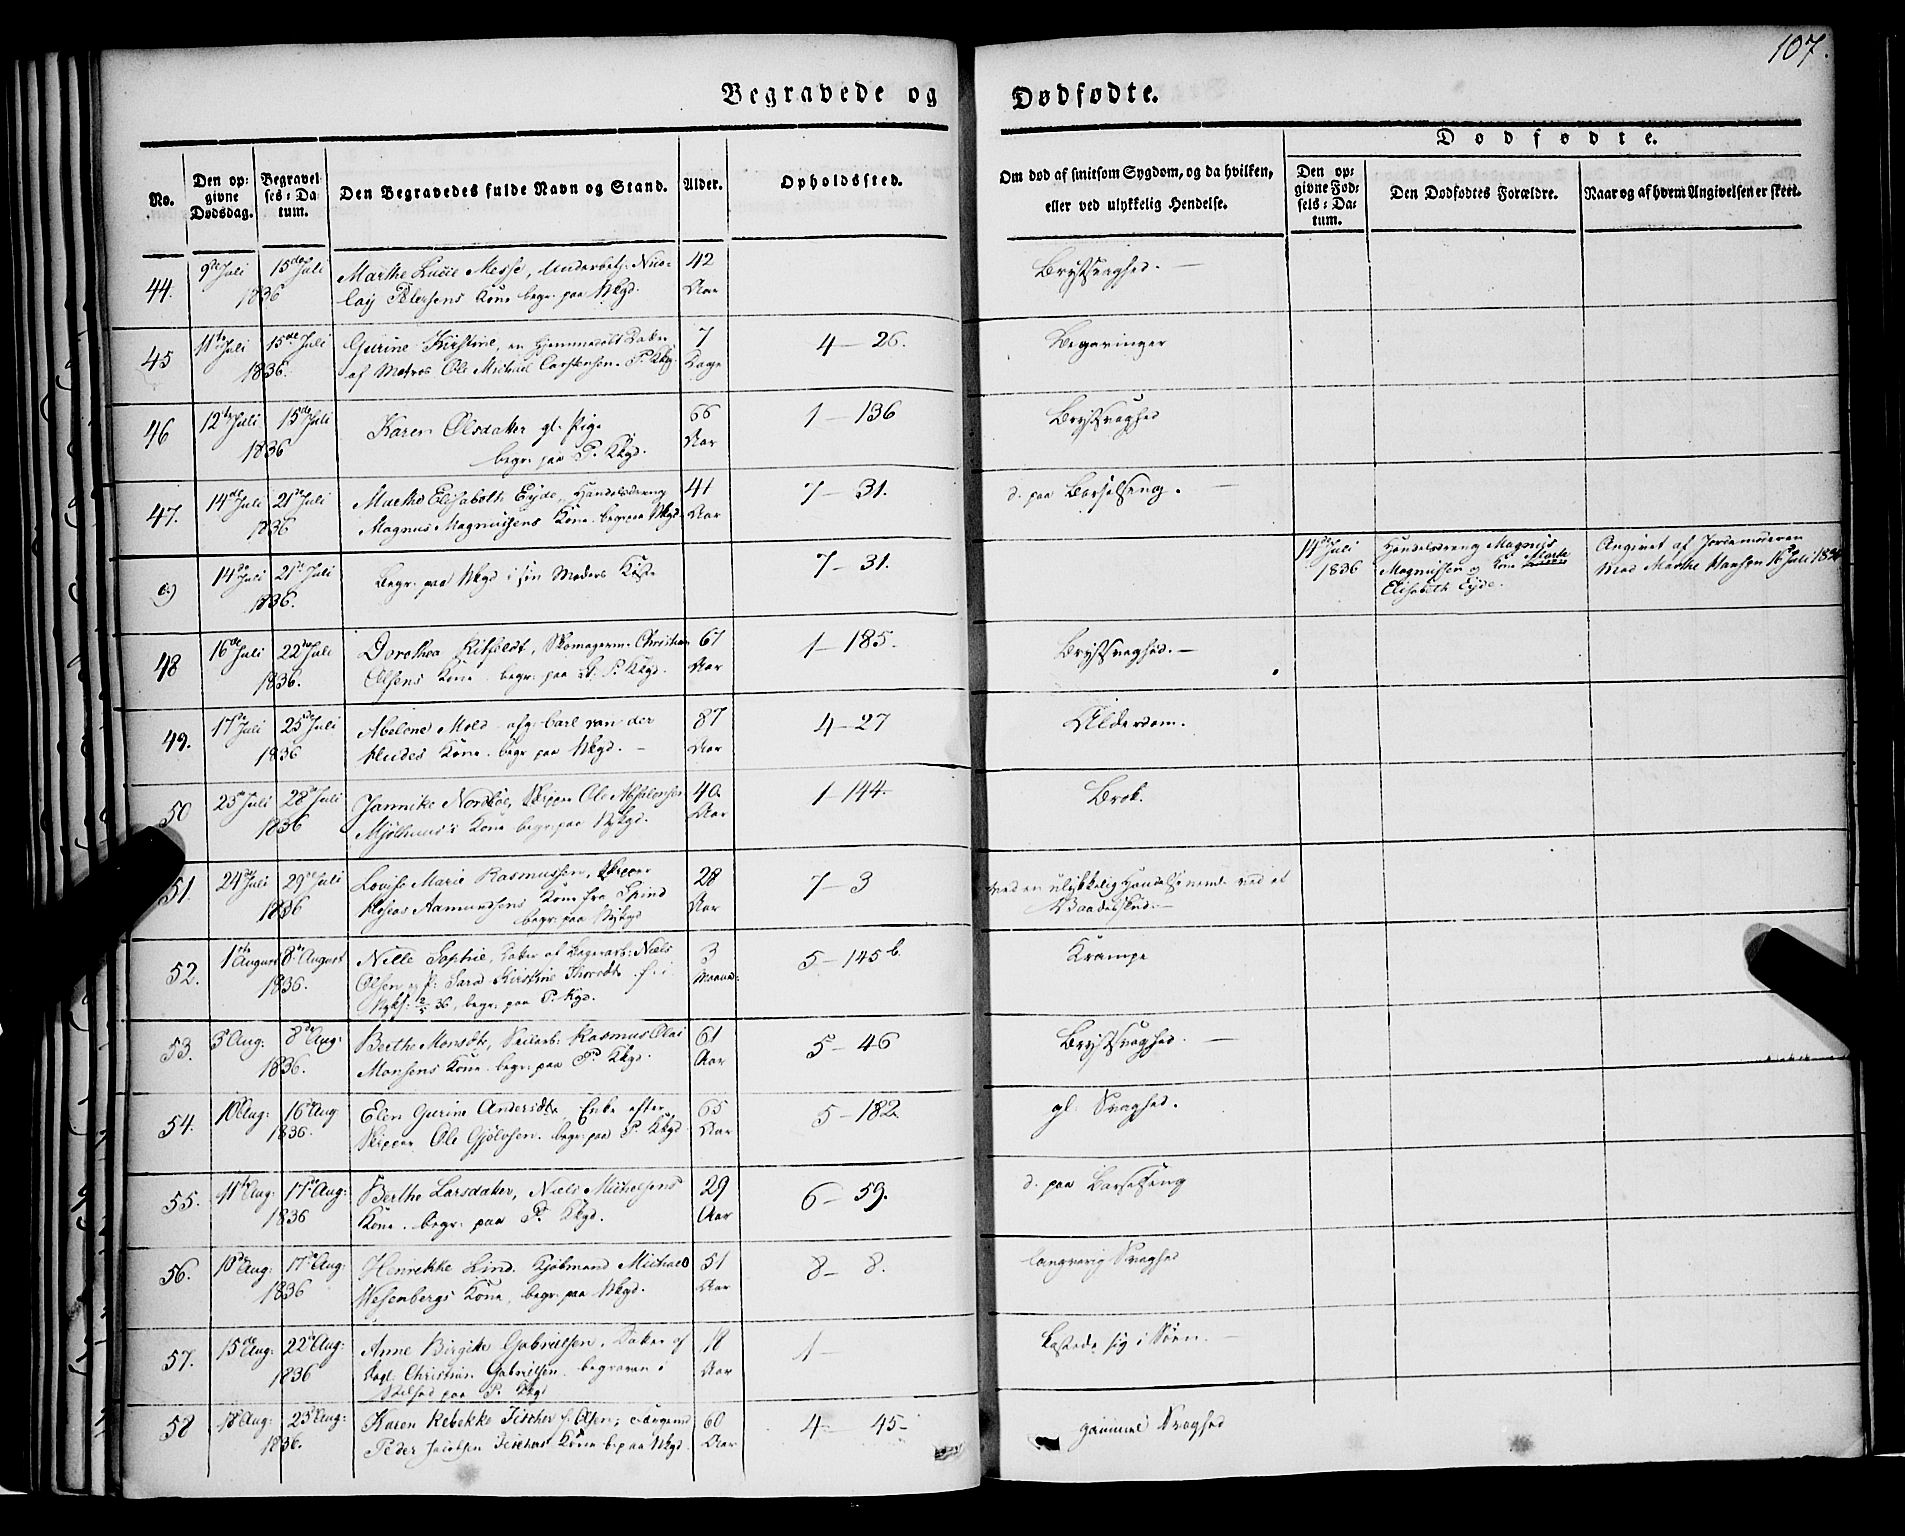 107.
Begravede og Dødfødte.
No.
Den opgivne Dødsdag.
Begravelses-Datum.
Den Begravedes fulde Navn og Stand.
Alder.
Opholdssted.
Om død af smitsom Sygdom, og da hvilken,
eller ved ulykkelig Hendelse.
Dødfødte.
Den opgivne Fødsels-Datum.
Den Dødfødtes Forældre.
Naar og af hvem Angivelsen er skeet.
44. 9de Juli 15de Juli 1836 Marthe Lucie Messe, Underbetj: Nico-
lay Petersens Kone begr: paa Nkgd. 42 Aar Brystsvaghed. —
45 11te Juli 15de Juli 1836. Gurine Kirstine, en Hjemmedøbt Datter
af Matros Ole Michael Carstensen. P. Kkg. 7 Dage 4 — 26. Begavninger
46 12te Juli 15de Juli 1836 Karen Olsdatter gl. Pige
begr: paa P. Kkgd. 66 Aar 1 — 136 Brystsvaghed
47. 14de Juli 21de Juli 1836 Marthe Elisabeth Eyde, Handelsdreng
Magnus Magnussens Kone. begr paa Nkgd 41 Aar 7 — 31. d. paa Barselseng. —
a) 14de Juli 21de Juli 1836. Begr. paa Nkgd i sin Moders Kiste 7 — 31. 14de Juli 1836 Handelsdreng Magnus
Magnussen og Kone Marte
Elisabeth Eyde. Angivet af Jordemoderen
Mad Marthe Hansen 16 Juli 1836
48 16de Juli 22de Juli 1836. Dorothea Ritfeldt, Skomagerm. Christian
Olsens Kone. begr: paa P. Kkgd. 67 Aar 1 — 185. Brystsvaghed. —
49. 17de Juli 25de Juli 1836 Abelone Mold afg: Carl van der
Hudes Kone. begr paa Nkgd. — 87 Aar 4 — 27 Alderdom.
50 25de Juli 28de Juli 1836 Jannike Nordbøe, Skipper Ole Absalonsen
Mjølhuus's Kone begr: paa Nykgd. 40. Aar 1 — 144. Brok.
51. 24de Juli 29de Juli 1836 Lovise Marie Rasmussen, Skipper
Hoseas Aamundsens Kone fra Spind
begr: paa Nykgd 28 Aar 7 — 3 ved en ulykkelig Hendelse neml. ved et
Vaadeskud. —
52. 1ste August 8de August 1836. Nille Sophie, Datter af Dagarb: Niels
Olsen og P: Sara Kirstine Thorsdtr. f. i
Nykf: 2/5 36, begr: paa P. Kgd. 3 Maand: 5 — 145 b. Krampe
53. 3 Aug: 8de Aug: 1836. Berthe Monsdtr, Seilarb: Rasmus Olai
Monsens Kone. begr: paa P. Kkgd. 61 Aar 5 — 46 Brystsvaghed. —
54. 10de Aug: 16de Aug 1836. Elen Gurine Andersdtr, Enke efter
Skipper Ole Gjølvsen. begr: paa P. Kkgd 65 Aar 5 — 182. gl: Svaghed.
55. 11te Aug: 17de Aug: 1836 Berthe Larsdatter, Niels Michelsens
Kone. begr: paa P. Kkgd. 29 Aar 6 — 59. d. paa Barselseng
56. 10de Aug: 17de Aug: 1836 Henrikke Lind. Kjøbmand Michael
Wesenbergs Kone, begr: paa Nkgd. 51 Aar 8 — 8. langvarig Svaghed
57. 15de Aug: 22de Aug: 1836 Anne Birgitte Gabrielsen, Datter af
Dagl: Christian Gabrielsen. begraven i
Stilhed paa P. Kkgd 18 Aar 1 — kastede sig i Søen. —
58 18de Aug: 25de Aug: 1836. Karen Rebekke Fischer f. Olsen,
Peder Jacobsen Fischers Kone b. paa Nkgd. 60 Aar 4 — 45 — gammel Svaghed